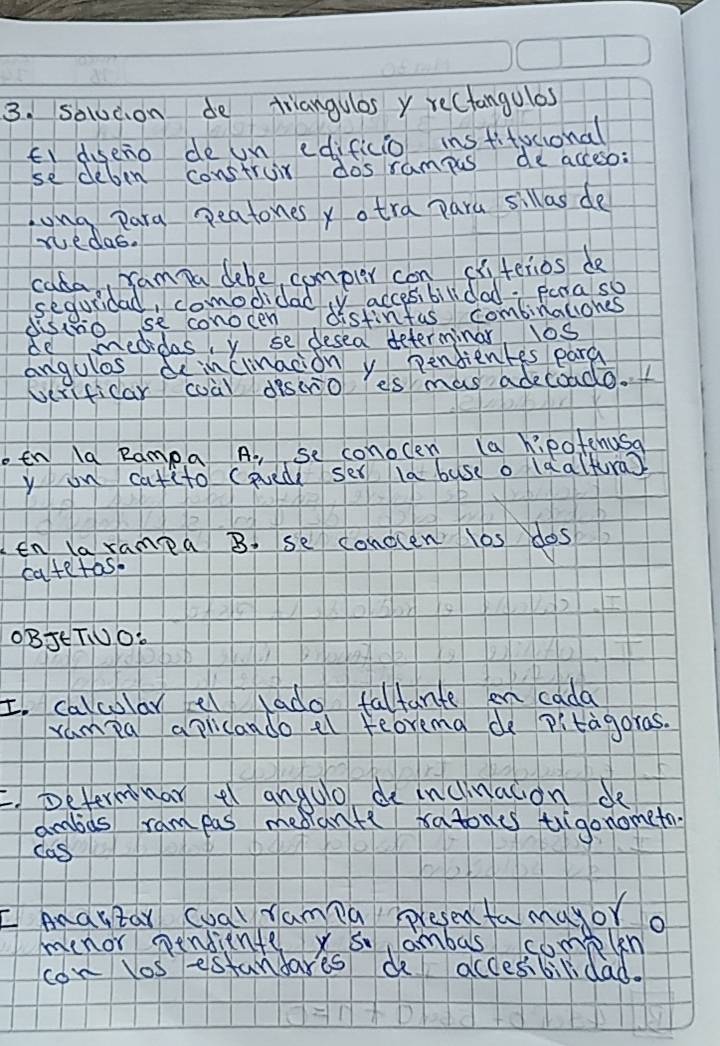 3. Solución de triangulos y rectangulos
El diseño de un edificio institucional
se deben construir dos rampas de acceso:
.una para peatones y otra para sillas de
ruedas.
cada rampa debe cumplir con criterios de
seguridad, comodidad y accesibilidad. para so
diseño se conocen distintas combinaciones
de medidas, y se desea determinar los
angulos de inclinación y pendientes para
verificar cuál diseño es mas adecuado.
. En la Rampa A, se conocen la hipotenusa
y un cateto (puede ser la base o la altura)
. En la rampa B. se conocen los dos
catetos.
OBJETIVO:
I. calcular el lado faltante en cada
rampa aplicando el teorema de Pitágoras.
I. Determinar el angulo de inclinación de
ambas rampas mediante razones trigonometri-
cas
I Analizar cual rampa presenta mayor o
menor pendiente y si ambas complen
con los estandares de accesibilidad.